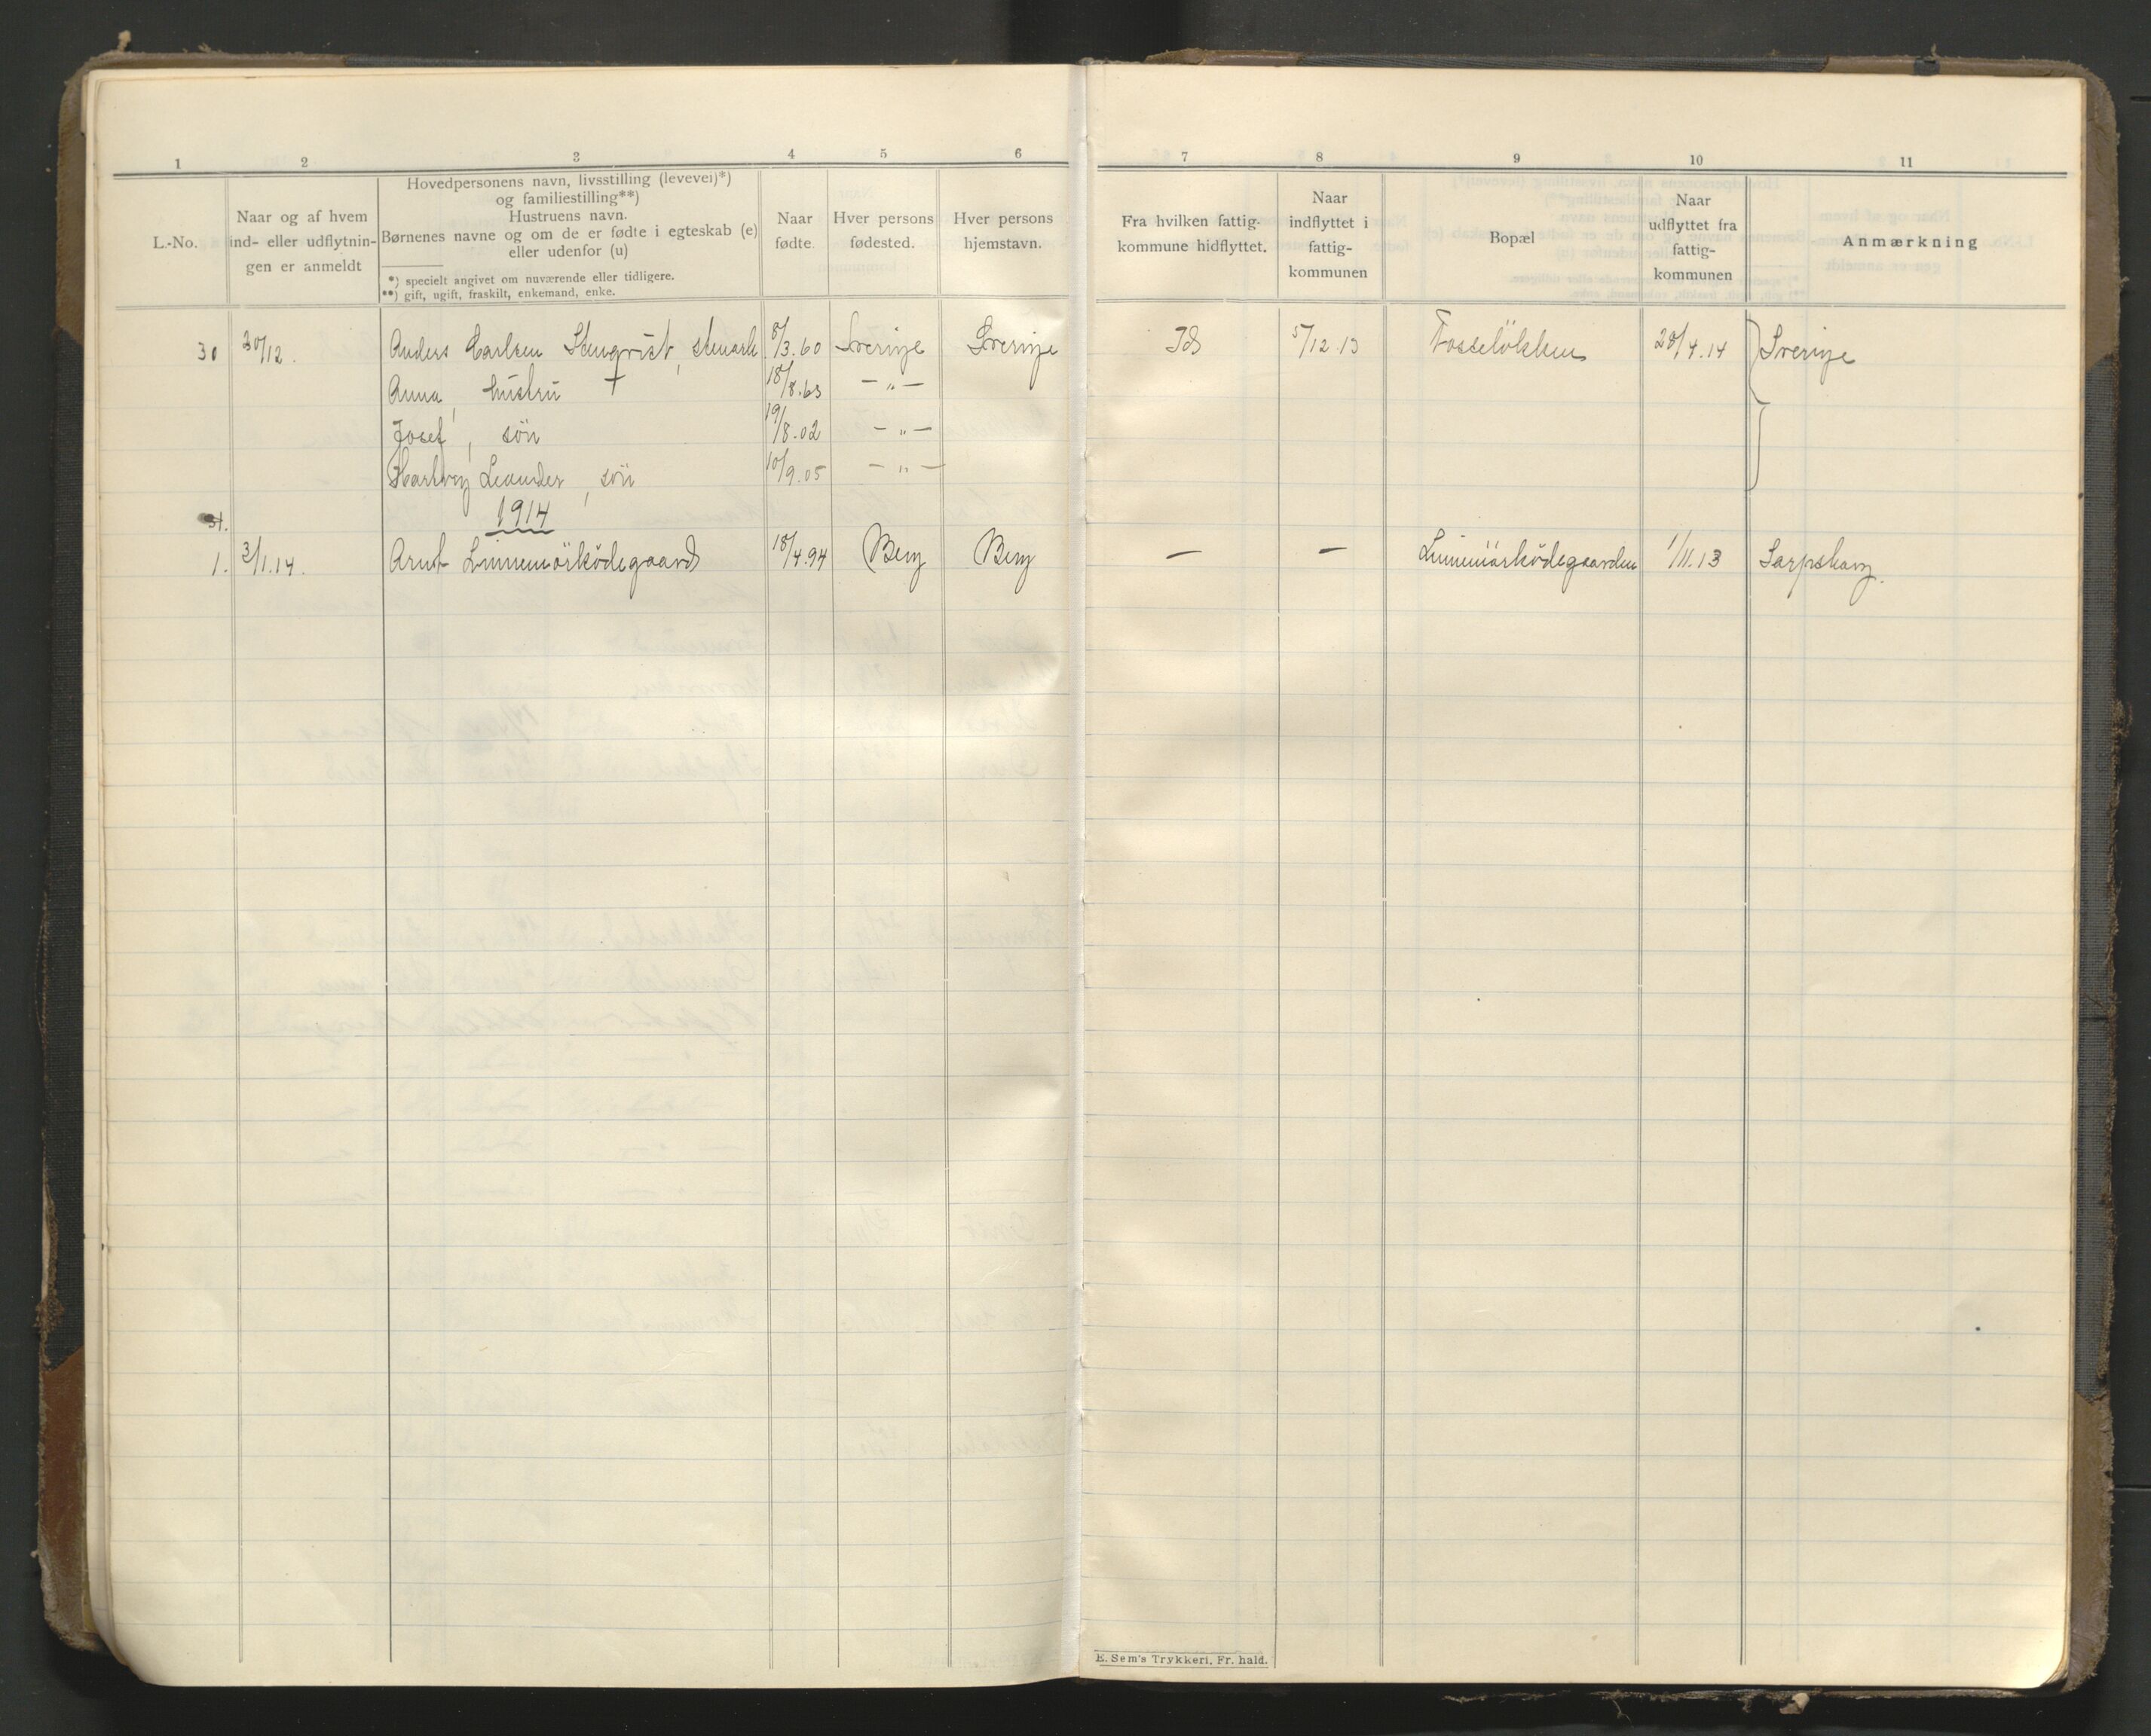 1 2 3 4 5 6 7 8 9 10 11
L.-No.
Naar og af hvem
ind- eller udflytnin-
gen er anmeldt
Hovedpersonens navn, livsstilling (levevei)*)
og familiestilling**)
Hustruens navn.
Børnenes navne og om de er fødte i egteskab (e)
eller udenfor (u)
*) specielt angivet om nuværende eller tidligere.
**) gift, ugift, fraskilt, enkemand, enke.
Naar
fødte.
Hver persons
fødested.
Hver persons
hjemstavn.
Fra hvilken fattig-
kommune hidflyttet.
Naar
indflyttet i
fattig-
kommunen
Bopæl
Naar
udflyttet fra
fattig-
kommunen
Anmærkning
30 30/12. Anders Carlsen Stenqvist, stenarb 8/3.60 Sverige Sverige Id 5/12.13 Fosseløkken 28/4.14 Sverige
Anna, hustru + 18/8.63 — „ —
Josef, søn 19/8.02 — „ —
Hartvig Leander, søn 10/9.05 — „ —
31. 1914
1. 3/1.14. Arnt Linnemörködegaard 18/4.94 Berg Berg — — Linnemörködegaarden 1/11.13 Sarpsborg.
E. Sem's Trykkeri, Fr. hald.